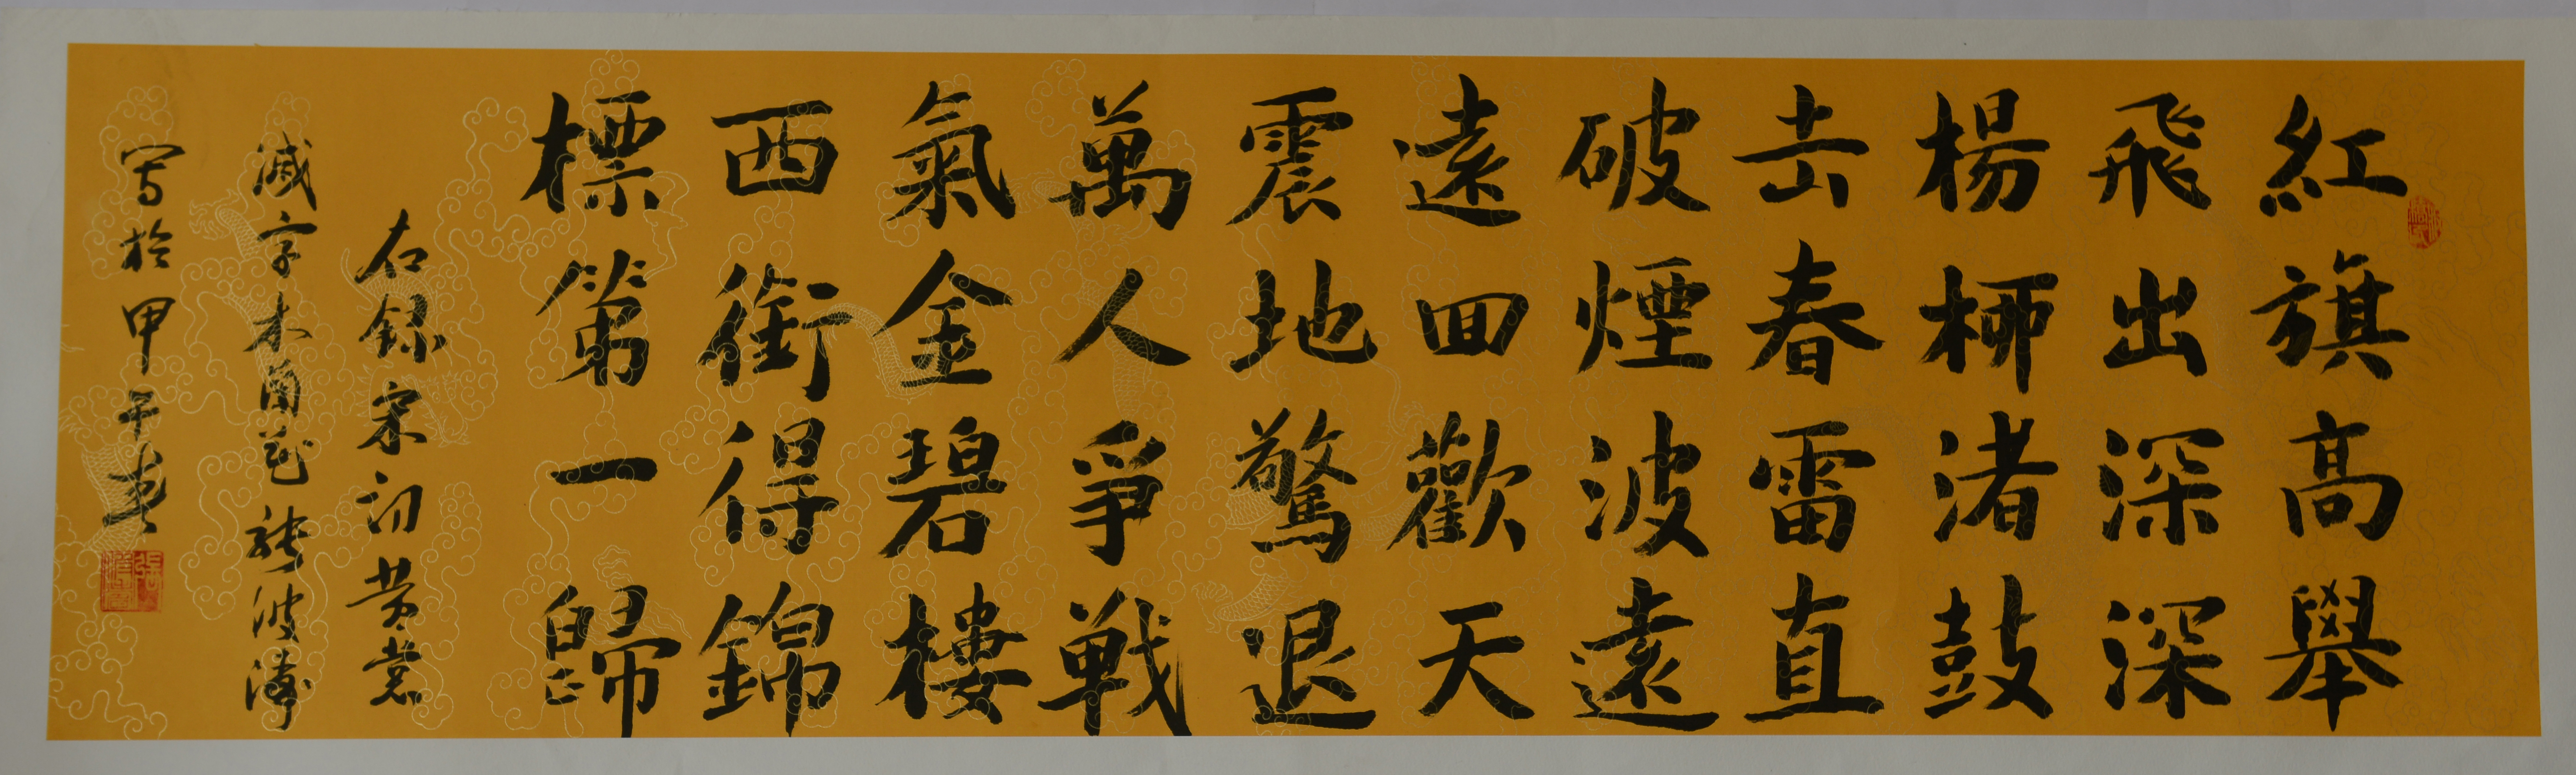 紅旗高舉
飛出深深
楊柳渚鼓
击春雷直
破煙波遠
遠回歡天
震地驚退
萬人爭戰
氣金碧樓
西銜得錦
標第一歸
右録宋詞黄裳
減字木蘭花張波濤
写於甲午